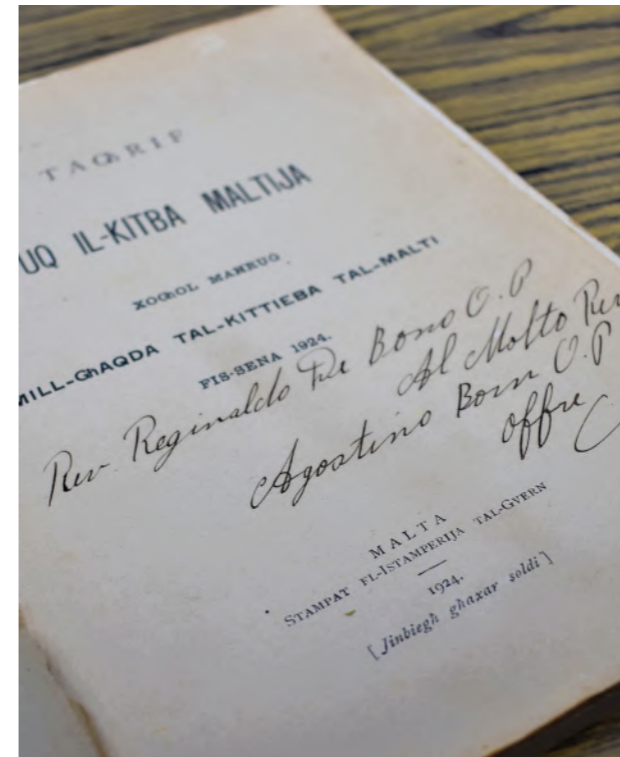 TAGĦRIF
UQ IL-KITBA MALTIJA
XOGĦOL MAĦRUĠ
MILL-GĦAQDA TAL-KITTIEBA TAL-MALTI
FIS-SENA 1924.
Rev. Reginaldo De Bono O.P
Al Molto Rev
Agostino Born O.P
offre
MALTA
STAMPAT FL-ISTAMPERIJA TAL-GVERN
1924.
[Jinbiegh ghaxar soldi]